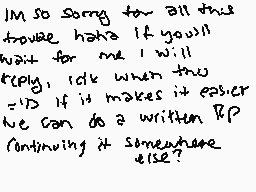 IM so sorry for all this
trouble haha if you'll
wait for me I will
reply, idk when tho
='D if it makes it easier
we can do a written RP
continuing it somewhere
else?